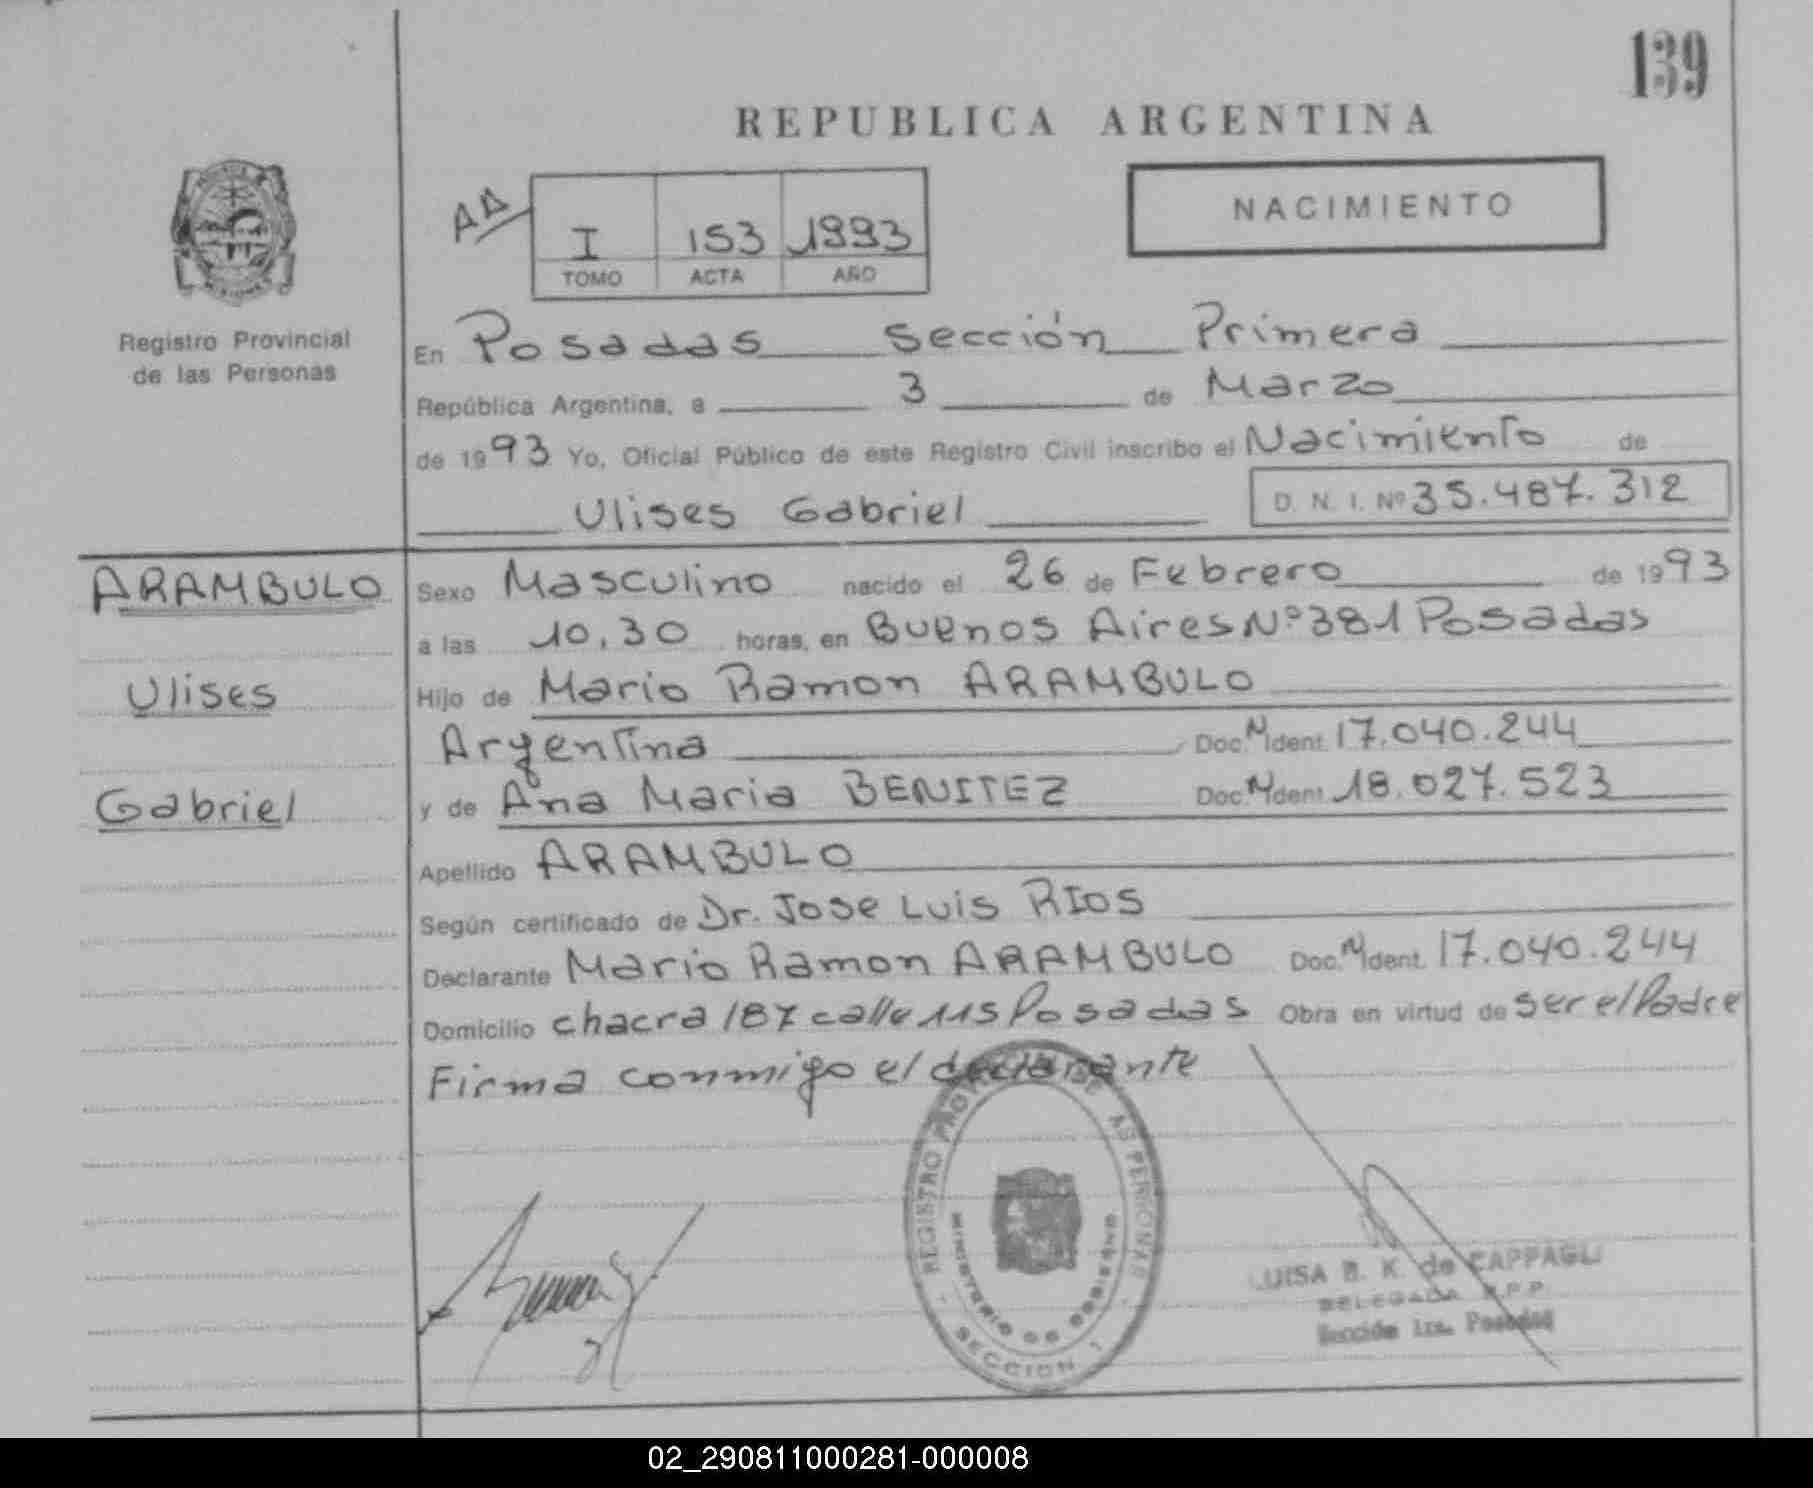 139
REPUBLICA ARGENTINA
NACIMIENTO
AA
I 153 1993
TOMO ACTA AÑO
Registro Provincial
de las Personas
En Posadas Sección Primera
República Argentina, a 3 de Marzo
de 1993 Yo, Oficial Público de este Registro Civil inscribo el Nacimiento de
Ulises Gabriel D. N. I. Nº 35.487.312
ARAMBULO
Ulises
Gabriel
Sexo Masculino nacido el 26 de Febrero de 1993
a las 10,30 horas, en Buenos Aires Nº 381 Posadas
Hijo de Mario Ramon ARAMBULO
Argentina Doc. N Ident. 17.040.244
y de Ana Maria BENITEZ Doc. N Ident. 18.027.523
Apellido ARAMBULO
Según certificado de Dr. Jose Luis RIOS
Declarante Mario Ramon ARAMBULO Doc. N Ident. 17.040.244
Domicilio chacra 187 calle 115 Posadas Obra en virtud de ser el Padre
Firma conmigo el declarante
REGISTRO PROVINCIAL DE LAS PERSONAS
MINISTERIO DE GOBIERNO
SECCION 1
LUISA B. K. de CAPPAGLI
DELEGADA R.P.P.
Sección 1ra. Posadas
02_290811000281-000008